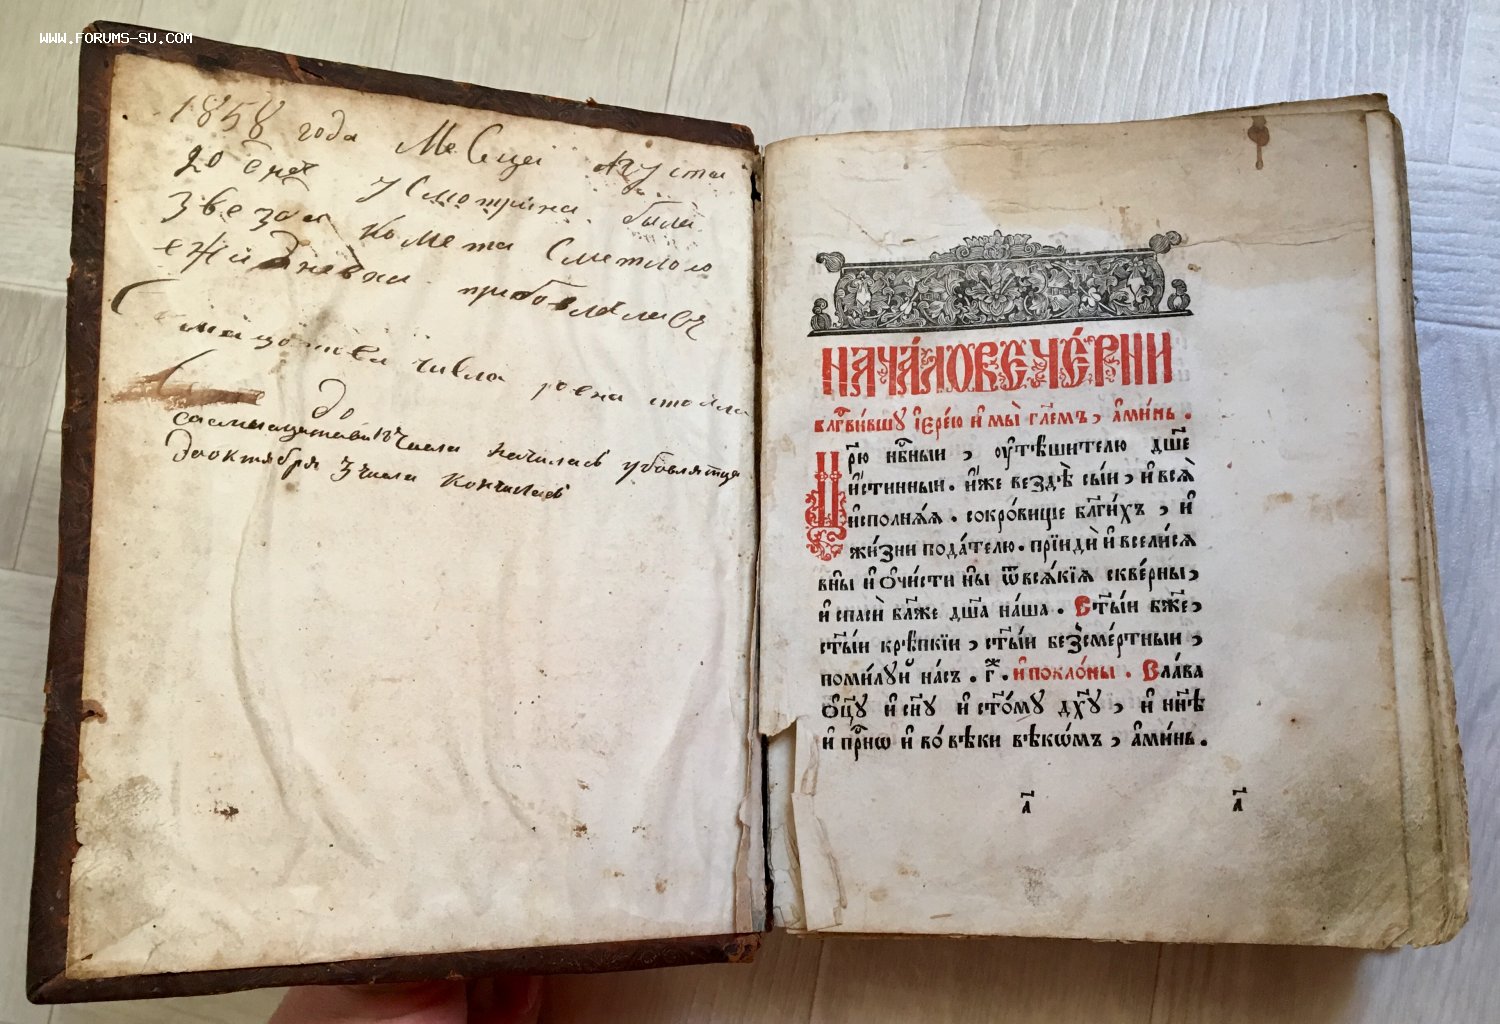 WWW.FORUMS-SU.COM
1858 года Месеца Августа
20 дня усмотрина была
звезда комета Сметлою
ежидневна прибовлялась
числа ровна стояла
до
числа начилась убовлятца
до октября 3 числа кончилась
НАЧА́ЛО ВЕЧЕ́РНИ
Бл҃гви́вшу і҆ере́ю и҆ мы̀ гл҃емъ, а҆ми́нь.
Цр҃ю нб҃ныи, ᲂу҆тѣ́шителю дш҃е
и҆́стинныи. и҆́же вездѣ̀ сы́и, и҆ всѧ̀
и҆сполнѧ́ѧ. сокро́вище бл҃ги́хъ, и҆
жи́зни пода́телю. прїидѝ и҆ всели́сѧ
в ны҆ и҆ ѻ҆чи́сти ны҆ ѿ всѧ́кїѧ скве́рны,
и҆ спасѝ бл҃же дш҃а на́ша. Ст҃ы́и бж҃е,
ст҃ы́и крѣ́пкїи, ст҃ы́и безсме́ртныи,
поми́луй на́съ. г҃. и҆ покло́ны. Сла́ва
ѻ҆ц҃у и҆ сн҃у и҆ ст҃о́му дх҃у, и҆ нн҃ѣ
и҆ при́снѡ и҆ во́ вѣки вѣкѡ́мъ, а҆ми́нь.
а҃ а҃